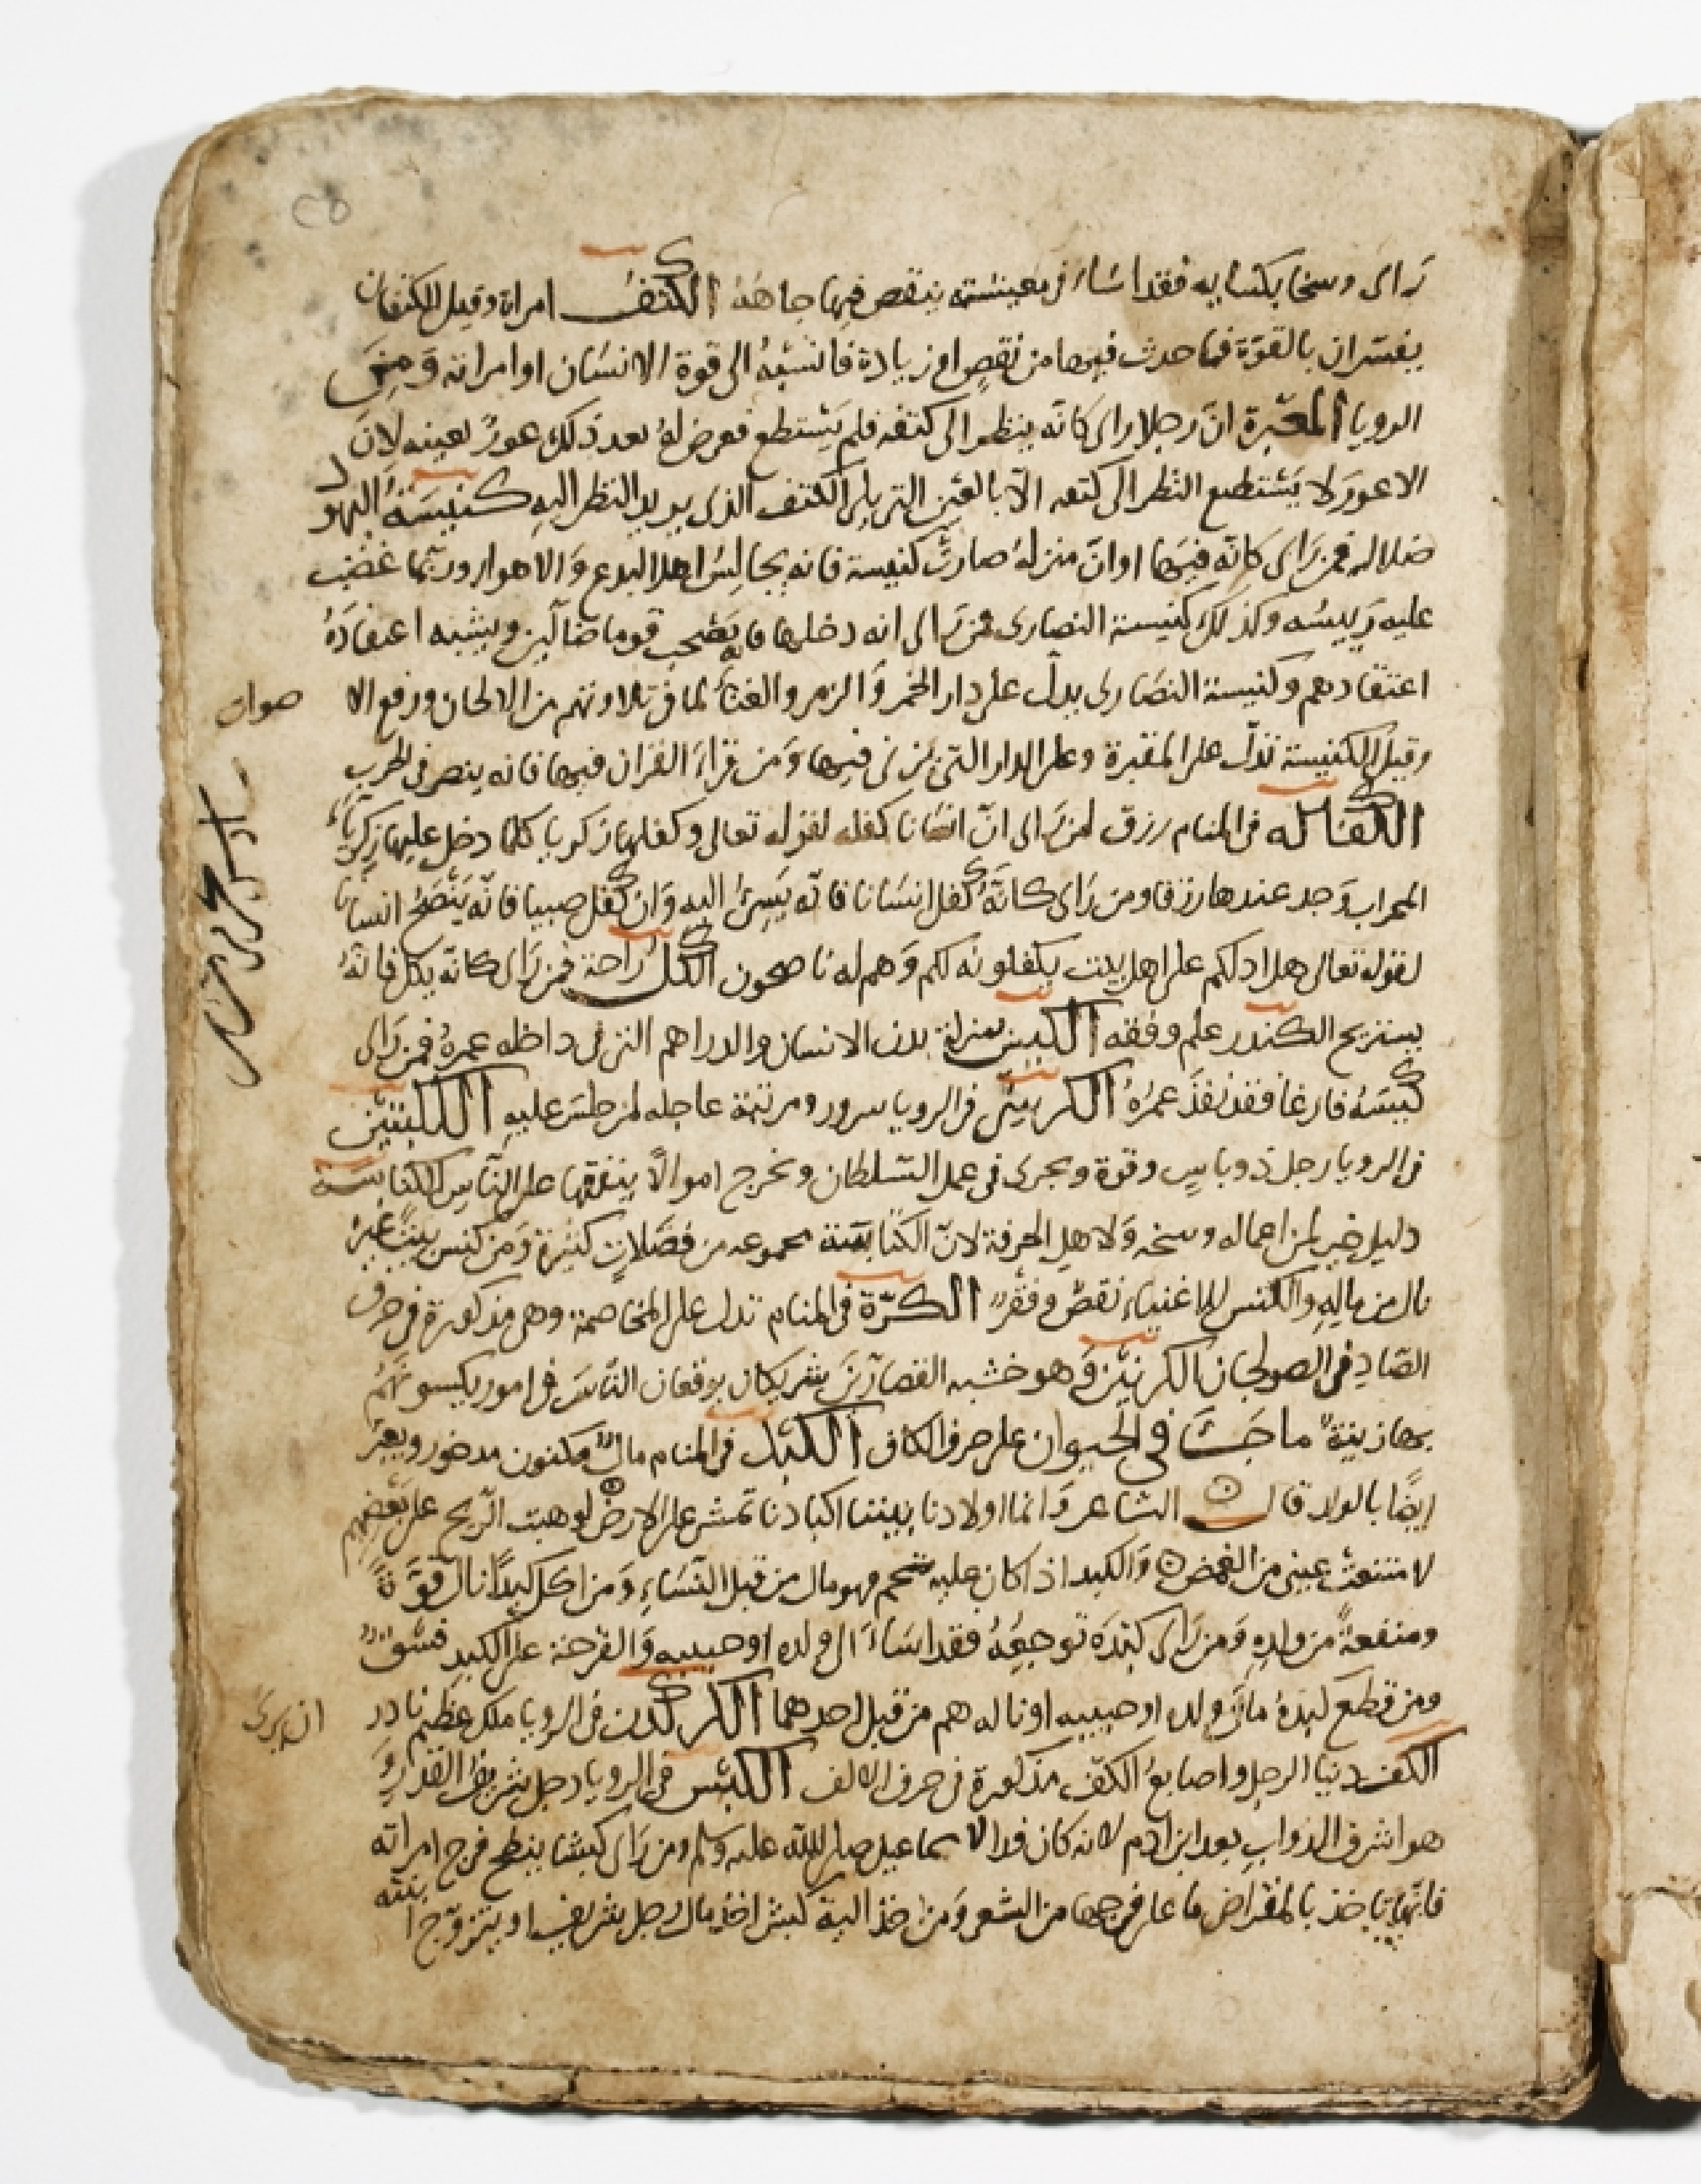 ٢٥
رَاى وسخا بكسايه فقد اساء فى معيشته ينقص فيها جاهُهُ الكتف امراة وقيل الكتفان
يفسران بالقوة فما حدث فيهما من نقص او زيادة فانسبهُ الى قوة الانسان او امراته وَ مِنَ
الرويا المعبرة ان رجلا راى كانه ينظر الى كتفه فلم يَستطع فعرض لهُ بعد ذلك عورٌ بعينه لاِنَ
الاعورَ لا يَستطيع النظر الى كتفه الاّ بالعين التى يلى الكتف الذى يريد النظر اليهِ كنيسَةُ اليهود
ضلاله فمن رَاى كانّه فيها او انّ منزلهُ صارت كنيسة فانه يجالِسُ اهل البدع وَالاهوا وربّما غضب
عليه رَييسُه وكذلك كنيسة النصارى فمن رَاى انه دخلها فانه يَصْحب قوما ضالّين ويشبه اعتقادَهُ
اعتقادهم وكنيسة النصَارى يدلّ على دار الخمر وَالزمر والغناء لما فى تلاوتهم من الالحان ورفع الا
صوات
وقيل الكنيسة تدلّ على المقبرة وعلى الدار التى يزنى فيها وَمن قراءَ القران فيها فانه ينصر فى الحَرب
الكفاله فى المنام رزق لمن رَاى انّ انسَانا كفله لقوله تعالى وكفلها زكريا كلما دخل عليها زكريّاء
المحراب وَجد عندها رزقا ومن رَاى كانّهُ كفل انسَانا فانّه يَسِىُٔ اليه وَان كفل صبيا فانّه يَنْصَحُ انسانا
لقوله تعالى هل ادلكم على اهل بيت يكفلونه لكم وَهم له ناصحون الكل رَاحة فمن رَاى كانه يكل فانهُ
يستريح الكندر علم وفقه الكيس بمنزلة بدن الانسان والدراهم التى فى داخله عمرهُ فمن رَاى
كيسَهُ فارغا فقد نفذَ عمرُهُ الكرسِىُّ فى الرويا سرور ومرتبة عاجله لمن جلسَ عليهِ الكلبتين
فى الرويا رجل ذو باسٍ وقوة ويجرى فى عمل السّلطان ويخرج اموالًا ينفقها على النّاسِ الكناسَة
دليل خير لمن اعماله وسخه وَلاهل الحرفة لانّ الكناسَة مجموعه من فضَلات كثيرة وَمن كنس بيتَ غيرهِ
نال من مالِهِ والكنس للاغنياء نقصٌ وفقرٌ الكرّة فى المنام تدل على المخاصمة وهى مذكورة فى حرف
الصّادِ فى الصولجان الكرنيّن وَهو خشبه القصارّين شريكان يوقعان النّاسَ فى امور يكسو نهُم
بها زينة ما جَاءَ فى الحيوان على حرف الكاف الكَبدُ فى المنام مالٌ مكنون مدخور ويعبّر
ايضًا بالولد قال الشاعر وَانما اولادنا بيننا اكبادنا تمشى على الارض لو هبت الرّيح على بَعْضِهم
لامتنعت عينى من الغمض وَالكبد اذا كان عليه شحم فهو مال من قبل النّسَاءِ وَمن اكل كبدًا نالَ قوَّةً
ومنفعةً من ولدِهِ وَمن رَاى كبدَه توجعهُ فقد اسَاءَ الى ولده او حبيبه وَالقرحة على الكبد فسْقٌ
ومن قطعَ كبدهُ ماتَ ولده او حبيبه او ناله هم من قبل احدهما الكركدن فى الرويا ملك عظيم نادر
ان يرى
الكف دنيا الرجل واصابعُ الكفّ مذكورة فى حرف الالف الكبش فى الرويا رجل شريف القدر وَ
هو اشرف الدواب بعد ابن ادم لانه كان فدا لاسماعيل صلى الله عليه وسلم ومن رَاى كبشا ينطح فرج امراته
فانّها تاخذ بالمقراض ما على فرجها من الشعر وَمن اخذ الية كبش اخذ مال رجل شريف او يتزوّج ابنته